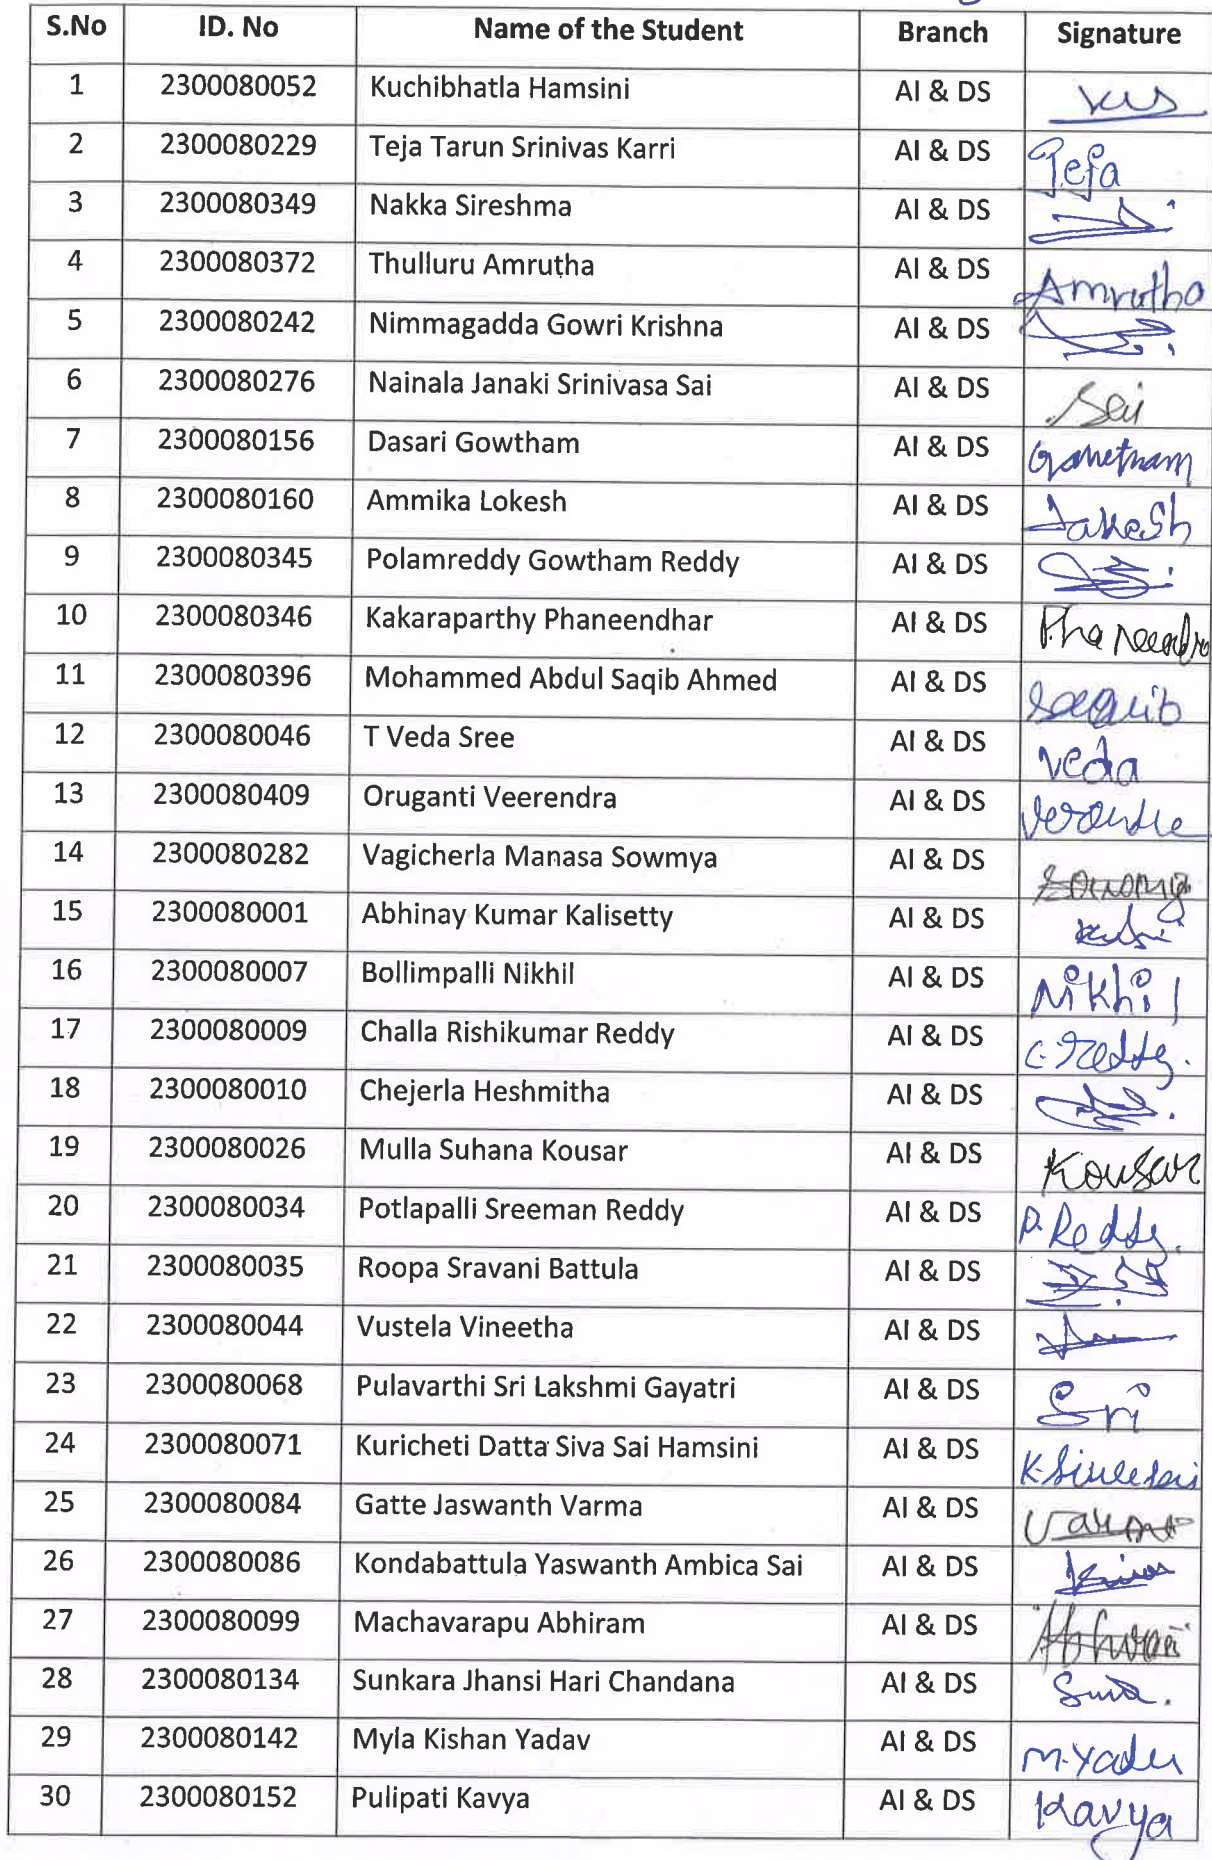 S.No ID. No Name of the Student Branch Signature
1 2300080052 Kuchibhatla Hamsini AI & DS
2 2300080229 Teja Tarun Srinivas Karri AI & DS Teja
3 2300080349 Nakka Sireshma AI & DS
4 2300080372 Thulluru Amrutha AI & DS Amrutha
5 2300080242 Nimmagadda Gowri Krishna AI & DS
6 2300080276 Nainala Janaki Srinivasa Sai AI & DS Sai
7 2300080156 Dasari Gowtham AI & DS
8 2300080160 Ammika Lokesh AI & DS
9 2300080345 Polamreddy Gowtham Reddy AI & DS
10 2300080346 Kakaraparthy Phaneendhar AI & DS
11 2300080396 Mohammed Abdul Saqib Ahmed AI & DS
12 2300080046 T Veda Sree AI & DS Veda
13 2300080409 Oruganti Veerendra AI & DS
14 2300080282 Vagicherla Manasa Sowmya AI & DS
15 2300080001 Abhinay Kumar Kalisetty AI & DS
16 2300080007 Bollimpalli Nikhil AI & DS Nikhil
17 2300080009 Challa Rishikumar Reddy AI & DS C. Reddy.
18 2300080010 Chejerla Heshmitha AI & DS
19 2300080026 Mulla Suhana Kousar AI & DS Kousar
20 2300080034 Potlapalli Sreeman Reddy AI & DS P. Reddy.
21 2300080035 Roopa Sravani Battula AI & DS
22 2300080044 Vustela Vineetha AI & DS
23 2300080068 Pulavarthi Sri Lakshmi Gayatri AI & DS Sri
24 2300080071 Kuricheti Datta Siva Sai Hamsini AI & DS
25 2300080084 Gatte Jaswanth Varma AI & DS
26 2300080086 Kondabattula Yaswanth Ambica Sai AI & DS
27 2300080099 Machavarapu Abhiram AI & DS
28 2300080134 Sunkara Jhansi Hari Chandana AI & DS
29 2300080142 Myla Kishan Yadav AI & DS
30 2300080152 Pulipati Kavya AI & DS Kavya